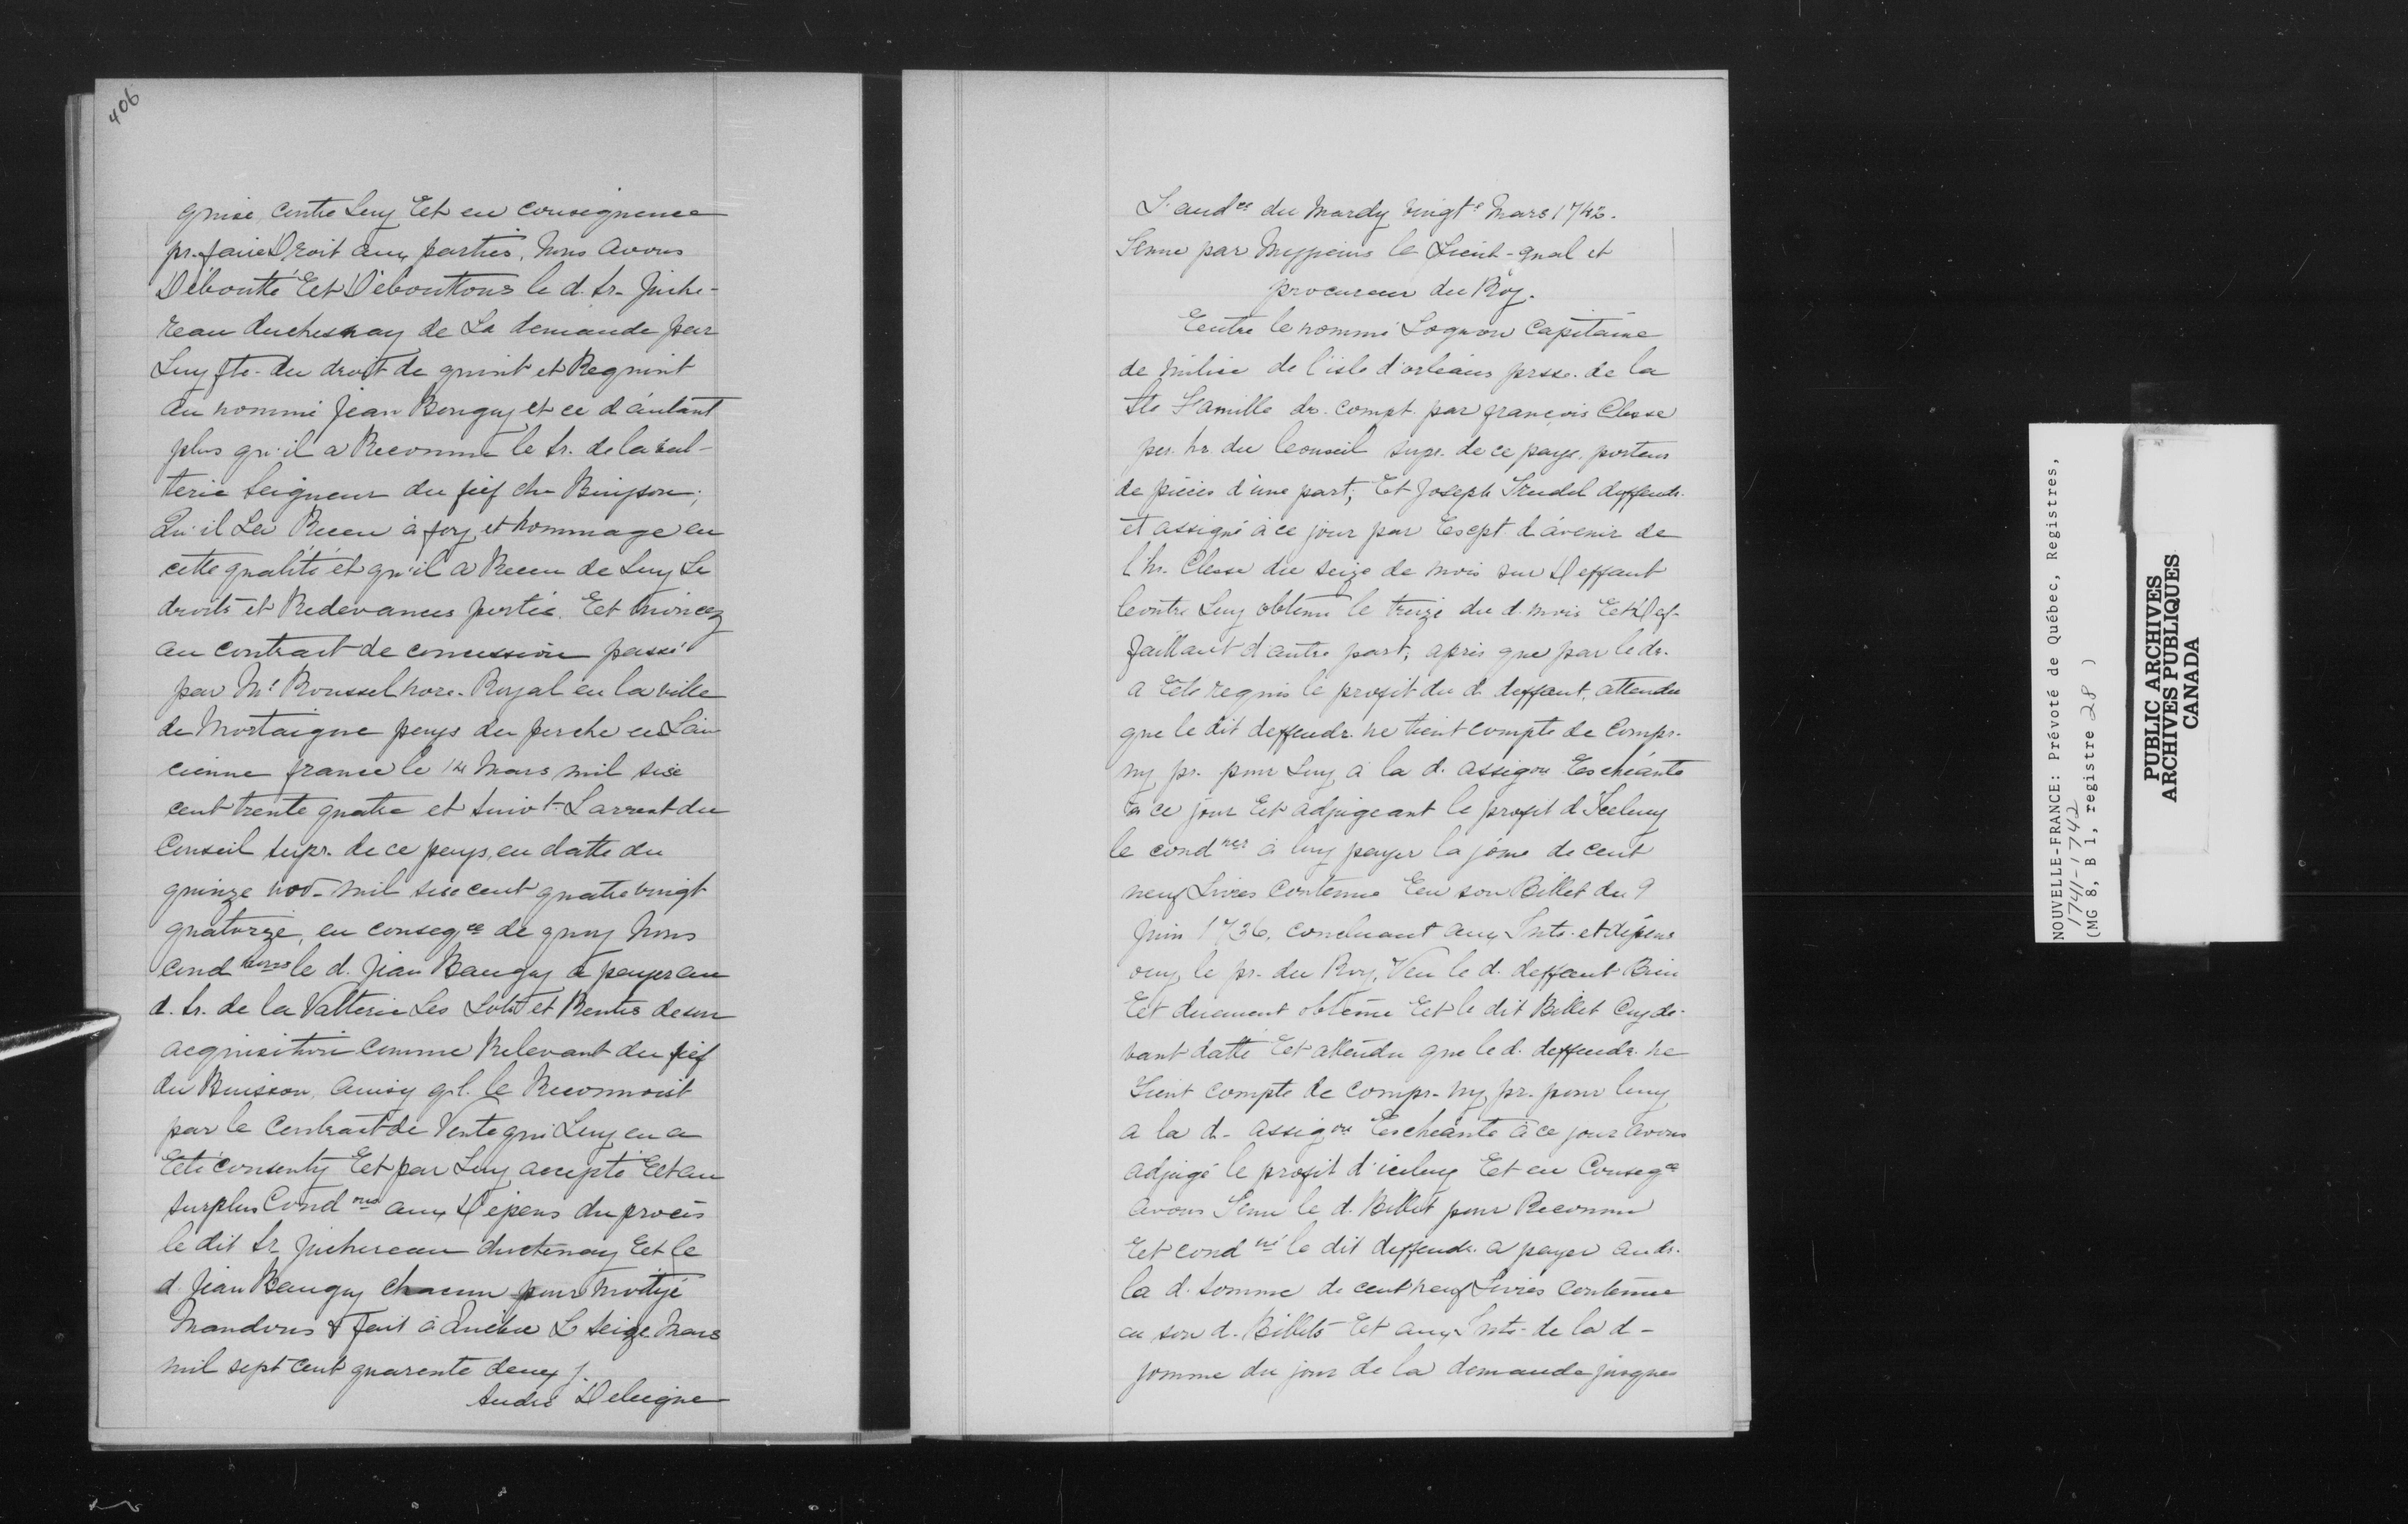 406
quise contre Luy Et en conséquence
pr. faire Droit aux parties, Nous avons
Débouté Et Déboutons le d. Sr. Juche-
reau duchesnay de La demande par
Luy fte. du droit de quint et Requint
au nommé Jean Bouguy et ce d'autant
plus qu'il a Reconnu le Sr. de la val-
terie Seigneur du fief du Buisson;
Qu'il La Receu à foy et hommage en
cette qualité et qu'il a Receu de Luy Le
droits et Redevances portée Et énoncez
au contract de concession passé
par Me Roussel nore. Royal en la ville
de Mortaigne pays du perche en Lan
cienne france le 14 Mars mil sise
cent trente quatre et suivt. Larrest du
Conseil supr. de ce pays, en datte du
quinze nov. mil sise cent quatre vingt
quatorze, en conseqce de quoy Nous
cond nons le d. Jean Baugy à payer au
d. Sr. de la Valterie Les Lots et Rentes de son
acquisition comme Relevant du fief
du Buisson, Ainsy ql. le Reconnoist
par le Contract de Vente qui Luy en a
Eté consenty Et par Luy accepté Et au
surplus Cond ons aux Dépens du procès
le dit Sr Juchereau duchenay Et le
d. Jean Baugy chacun pour moityé
Mandons & fait à Québec Le seize Mars
mil sept cent quarente deux /.
André Deleigne
L'audce du Mardy vingte Mars 1742.
Tenue par Messieurs le Lieut-gnal et
procureur du Roy.
Entre le nommé Lognon Capitaine
de milice de l'isle d'orleans prsse. de la
Ste Famille dr. compt. par françois Clesse
per. hr. du Conseil supr. de ce pays porteur
de pièces d'une part; Et Joseph Trudel deffendr.
et assigné à ce jour par Escpt. d'avenir de
l'hr. Clesse du seize de mois sur Deffaut
Contre Luy obtenu le treize du d. mois Et Def-
faillant d'autre part; après que par le dr.
a Eté requis le profit du d. deffaut, attendu
que le dit deffendr. ne tient compte de Compr.
ny pr. pour Luy à la d. assigon Eschéante
à ce jour Et adjugeant le profit d'Iceluy
le cond ner à luy payer la some de cent
neuf Livres contenue En son Billet du 9
Juin 1736, concluant aux Ints. et dépens
ouy le pr. du Roy, Veu le d. deffaut Bien
Et duement obtenu Et le dit Billet Cy de-
vant datté Et attendu que le d. deffendr. ne
Tient compte de compr. ny pr. pour luy
a la d. assigon Eschéante à ce jour avons
adjugé le profit d'iceluy Et en Conseqce
avons Tenu le d. Billet pour Reconnu
Et cond né le dit deffendr. a payer au dr.
la d. somme de cent neuf Livres contenue
en son d. Billets Et aux Ints. de la d-
somme du jour de la demande jusques
NOUVELLE-FRANCE: Prévoté de Québec, Registres,
1741-1742
(MG 8, B 1, registre 28 )
PUBLIC ARCHIVES
ARCHIVES PUBLIQUES
CANADA